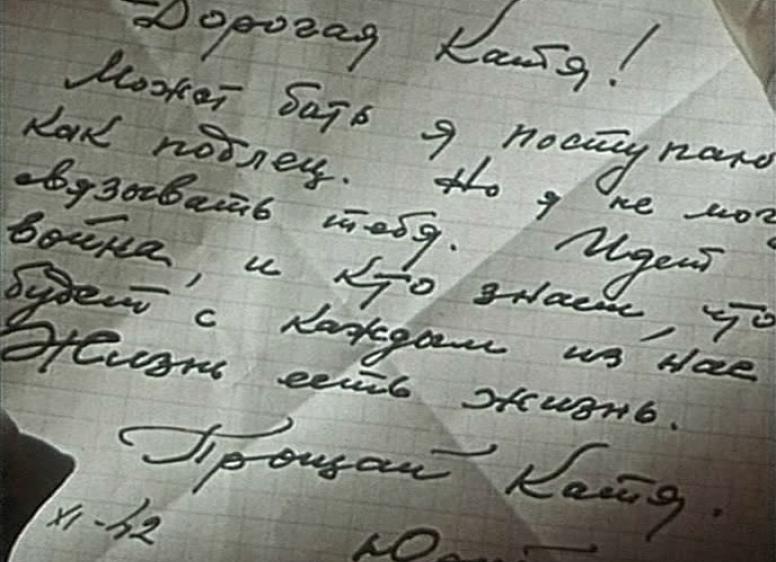 Дорогая Катя!
Может быть я поступаю
как подлец. Но я не мог
связывать тебя. Идет
война, и кто знает, что
будет с каждым из нас
Жизнь есть жизнь.
Прощай Катя.
XI-42